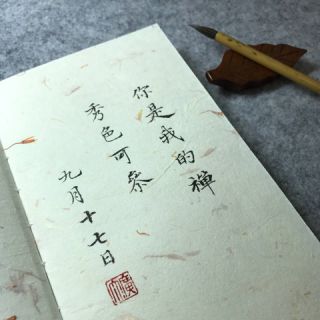 你是我的禅
秀色可参
九月十七日